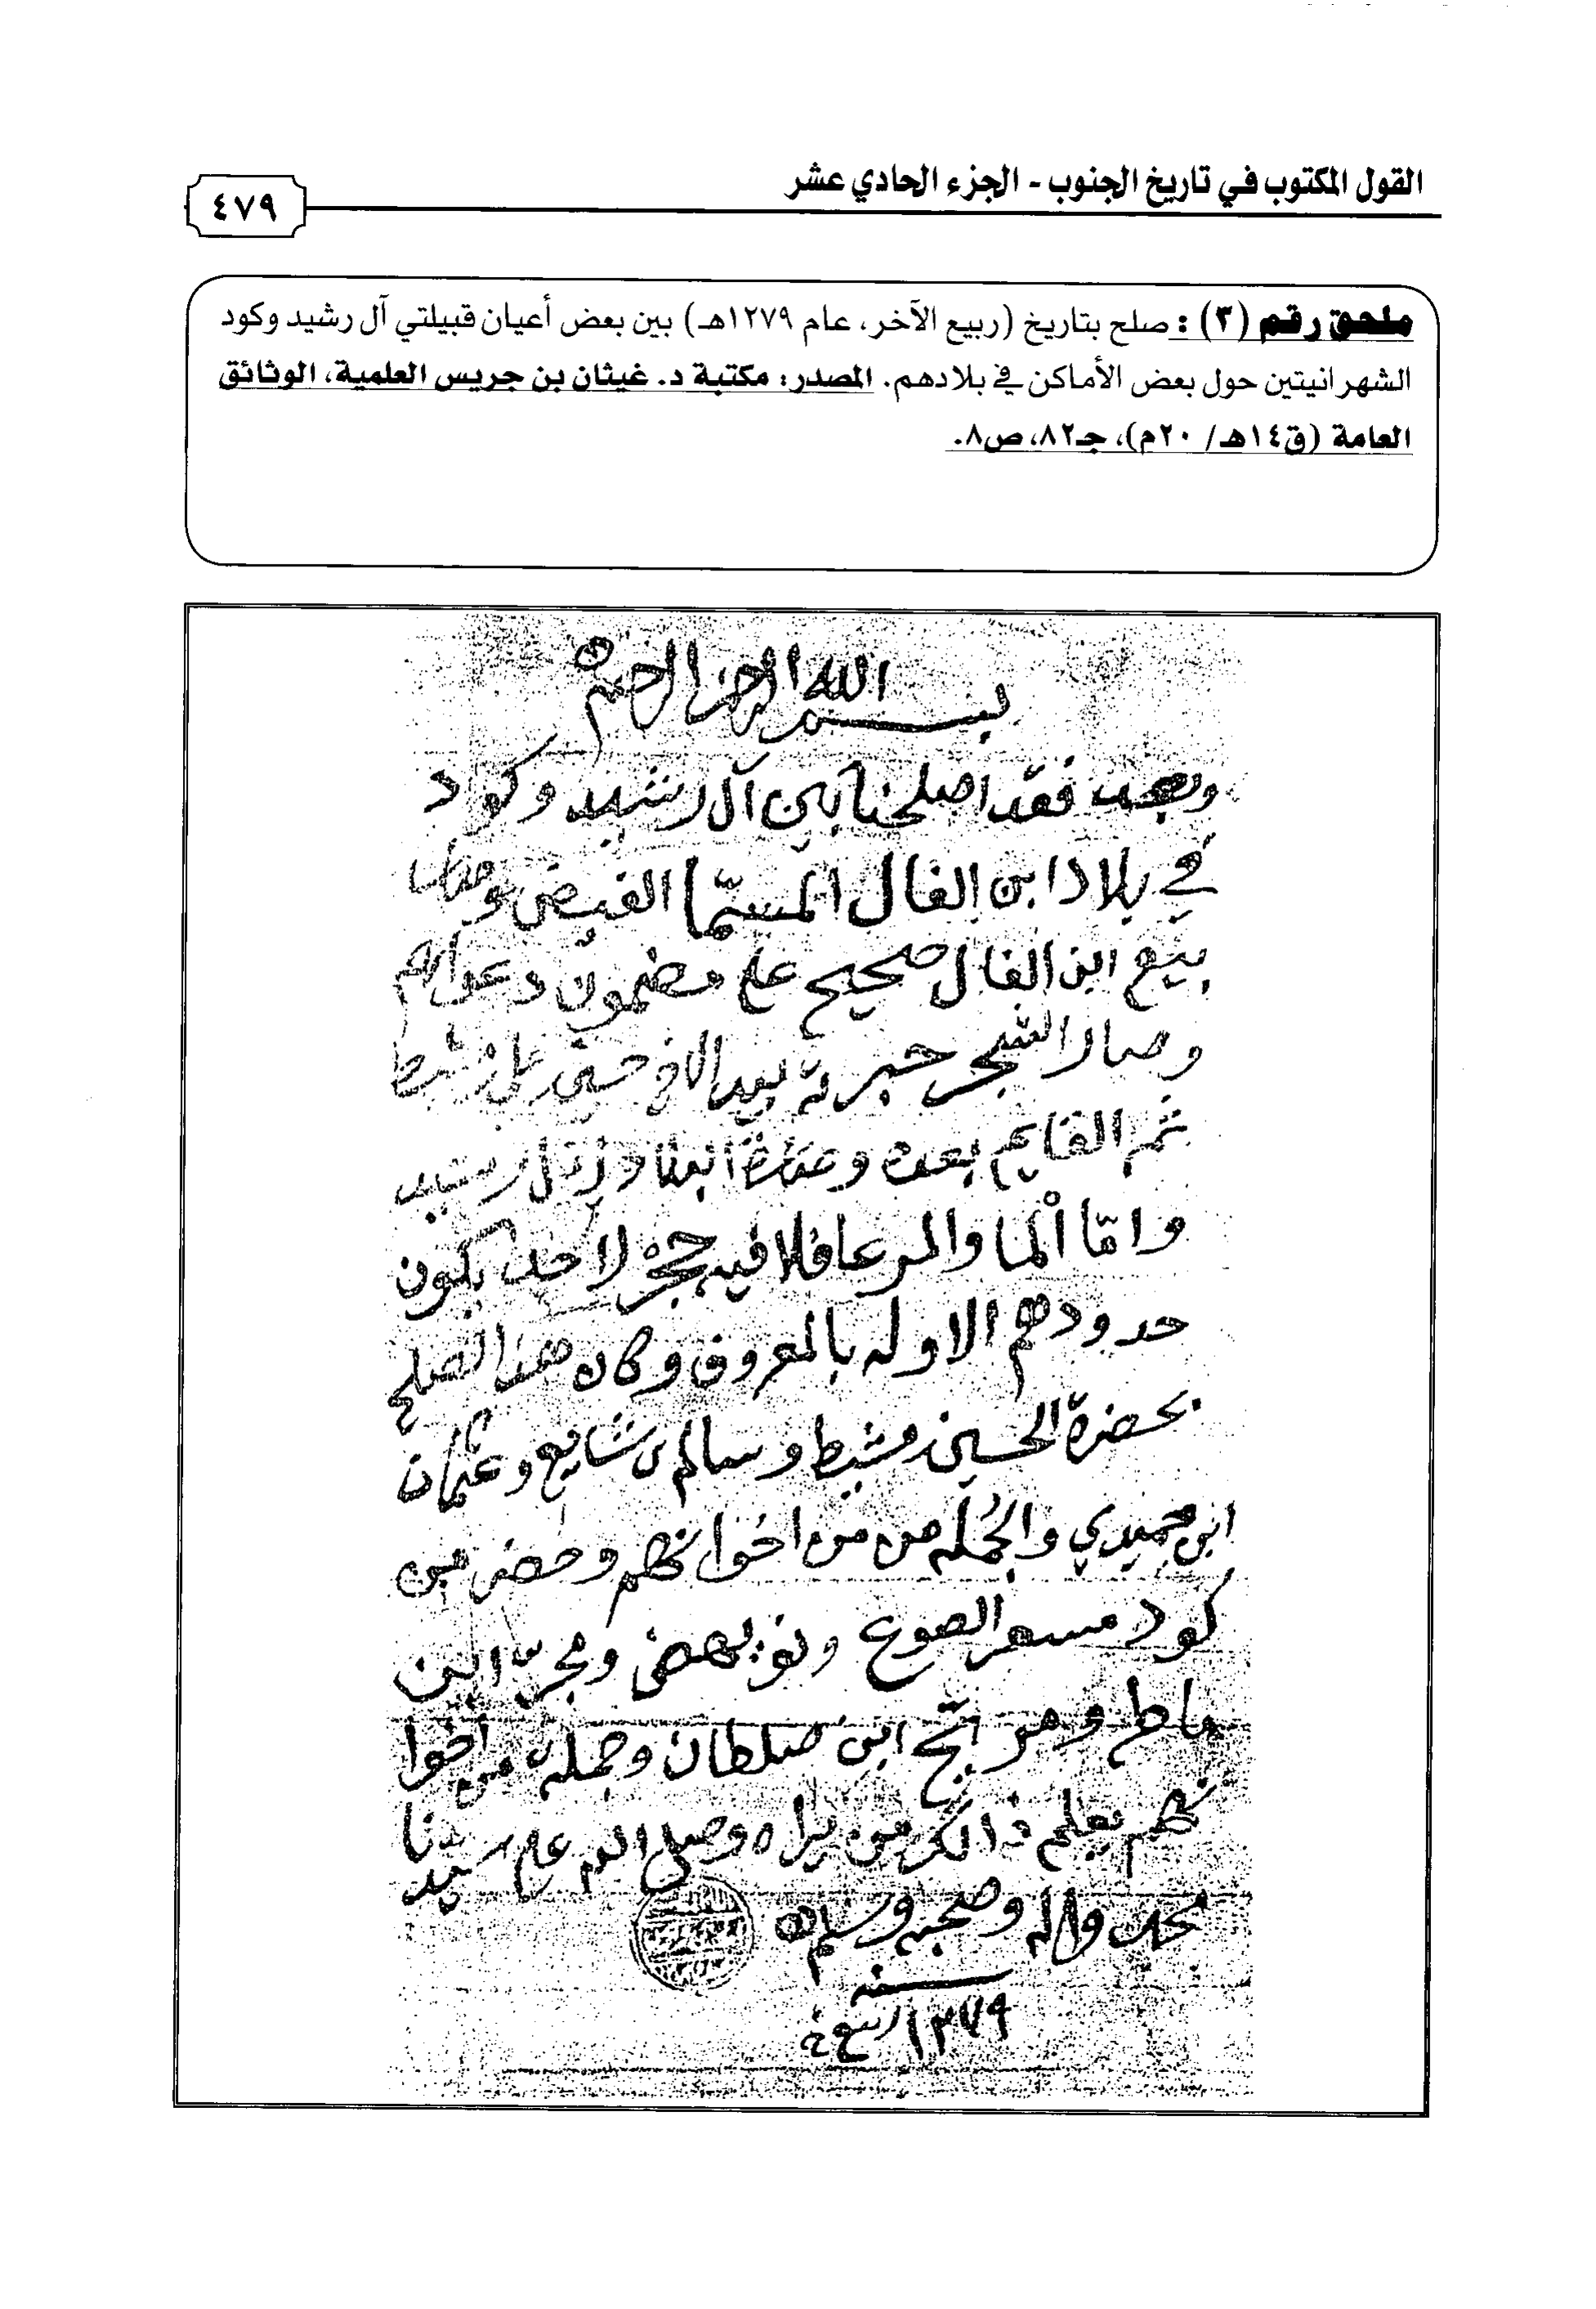 القول المكتوب في تاريخ الجنوب - الجزء الحادي عشر
٤٧٩
ملحق رقم (٣) : صلح بتاريخ (ربيع الآخر، عام ١٢٧٩هـ) بين بعض أعيان قبيلتي آل رشيد وكود
الشهرانيتين حول بعض الأماكن في بلادهم. المصدر: مكتبة د. غيثان بن جريس العلمية، الوثائق
العامة (ق١٤هـ/ ٢٠م)، جـ٨٢، ص٨.
بسم الله الرحمن الرحيم
وبعد فقد اصلحنا بين آل رشيد وكود
في بلاد ابن الفال المسمّا الفيض وصار
بيع ابن الفال صحيح على مضمون دعواهم
وصار الشجر خبرته بيد الاخ حسين بن مشيط
ثم القايم بعده البلاد لآل رشيد
وامّا ألما والمرعا فلا فيه حجز لاحد يكون
حدودهم الاوله بالمعروف وكان هذا الصلح
بحضرة الحسين بن مشيط وسالم بن شايع وعثمان
ابن حميدي والجُمله من من اخوانهم وحضر من
كود مسفر الصوع ونويهض ومجرّي ابن
ماطر وهر ابن صلطان وجملة من اخوا
نهم يعلم ذالك من يراه وصلى الله على سيدنا
محمد واله وصحبه وسلم
سنه
١٢٧٩ ربيع خ